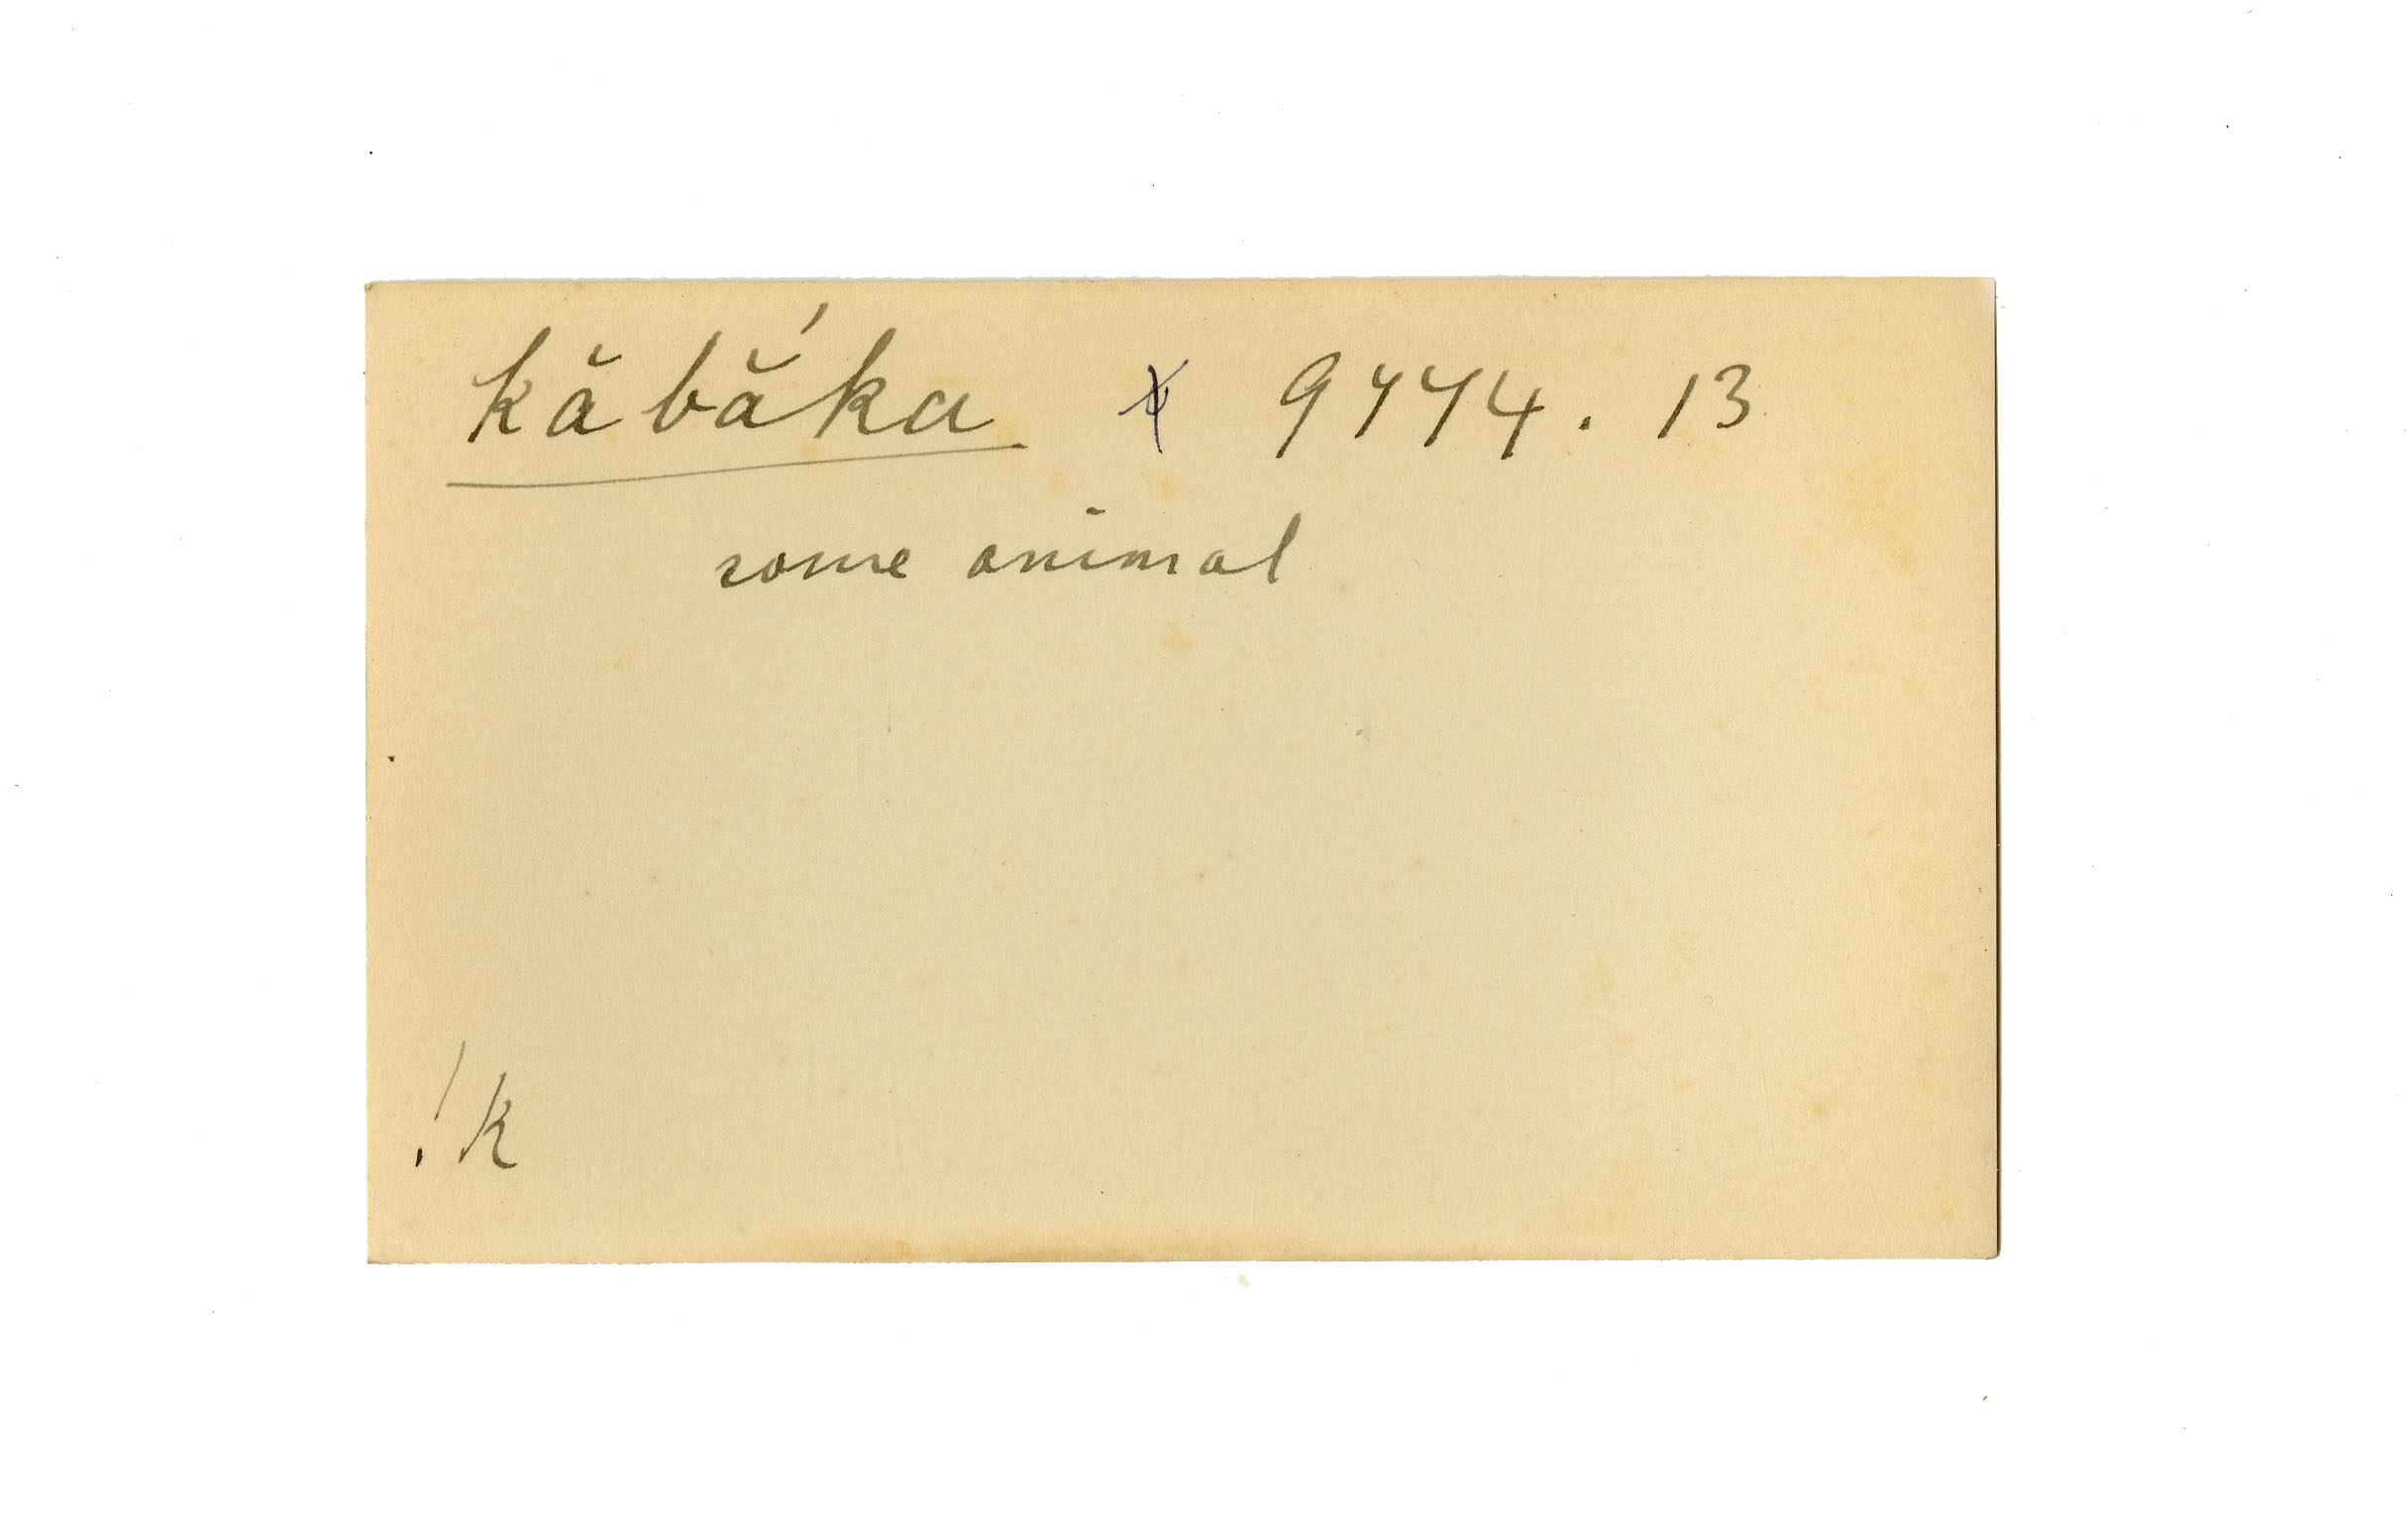 kăbắka 9774. 13
some animal
!k